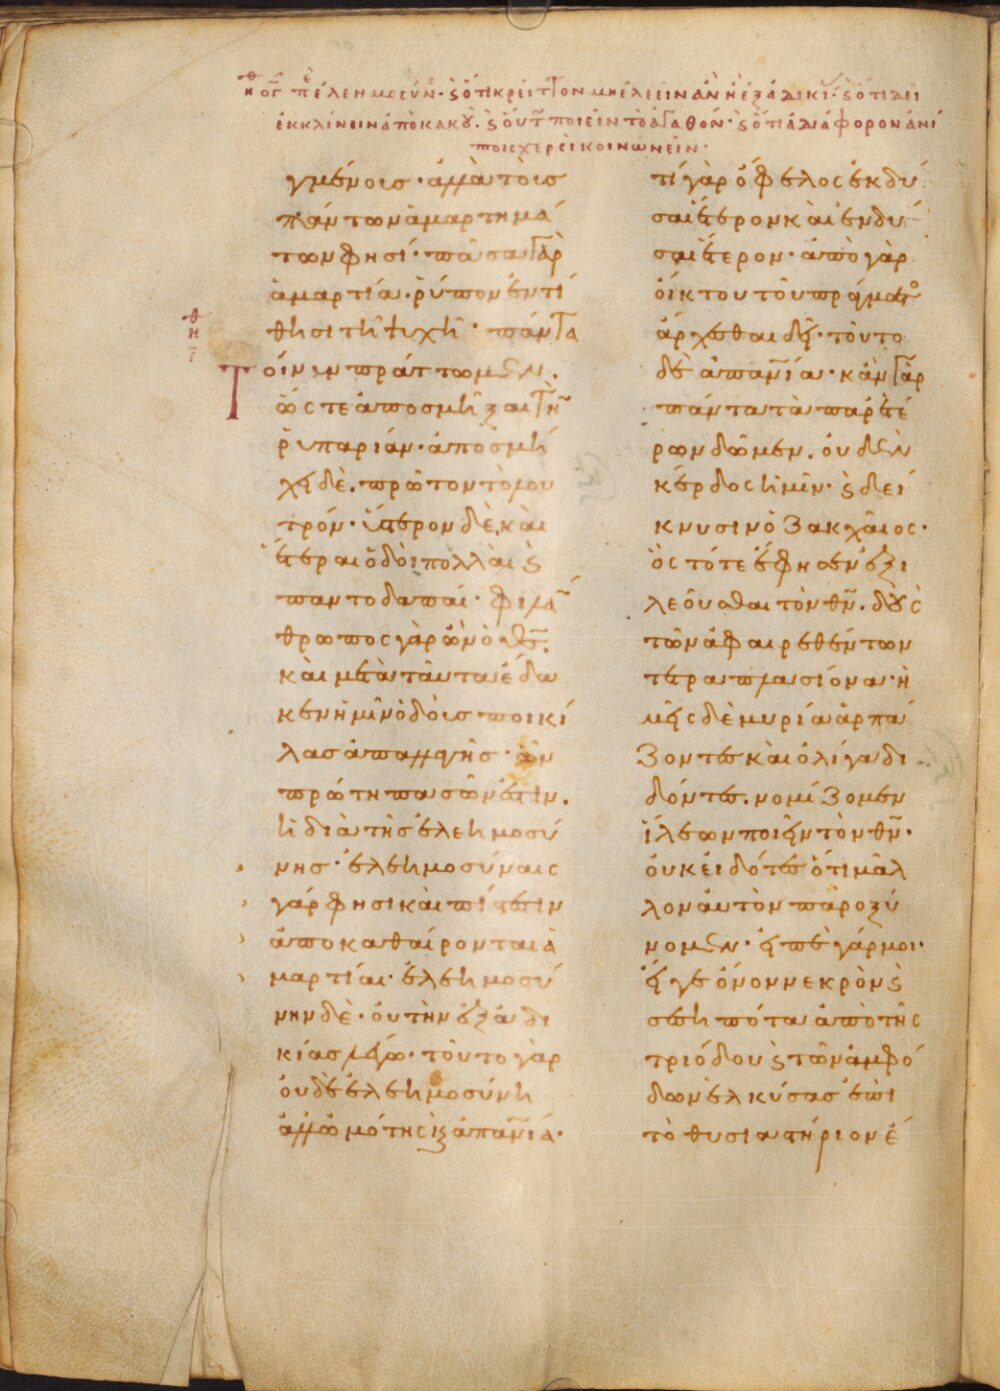 ἠθ ογ πε ἐλεημοσύν· ϛ ὅτι κρεῖττον μὴ ἐλεεῖν ἂν ἢ ἐξ ἀδικί· ϛ ὅτι δεῖ
ἐκκλίνειν ἀπὸ κακοῦ· ϛ οὕτ ποιεῖν τὸ ἀγαθόν· ϛ ὅτι ἀδιάφορον ἀνί
κοινωνεῖν·
γμένοις· ἀλλὰ τοῖς
πάντων ἁμαρτημά
των φησί· πᾶσα γὰρ
ἁμαρτία· ῥύπον ἐντί
θησι τῆ ψυχῆ· πάντα
Τοίνυν πράττωμεν.
ὥστε ἀποσμῆξαι τὴν
ῥυπαρίαν· ἀποσμή
χει δὲ. πρῶτον τὸ λου
τρόν· ὕστερον δὲ. καὶ
ἕτεραι ὁδοὶ πολλαὶ ϛ
παντοδαπαί· φιλάν
θρωπος γὰρ ὢν ὁ θς·
καὶ μετὰ ταῦτα ἔδω
κεν ἡμῖν ὁδοὺς ποικί
λας ἀπαλλαγῆς· ὧν
πρώτη πασῶν ἐστιν.
ἡ διὰ τῆς ἐλεημοσύ
νης· ἐλεημοσύναις
γάρ φησι καὶ πίστεσιν
ἀποκαθαίρονται ἁ
μαρτίαι· ἐλεημοσύ
νην δὲ· οὐ τὴν ἐξ ἀδι
κίας λέγω· τοῦτο γὰρ
οὐδὲ ἐλεημοσύνη
ἀλλ' ὠμότης ϛ ἀπανία·
τί γὰρ ὄφελος ἐκδῦ
σαι ἕτερον καὶ ἐνδῦ
σαι ἕτερον· ἀπὸ γὰρ
οἴκτου τοῦ πράγματο
ἄρχεσθαι δεῖ· τοῦτο
δὲ ἀπανία· κἂν γὰρ
πάντα τὰ παρ' ἑτέ
ρων δῶμεν. οὐδὲν
κέρδος ἡμῖν· ϛ δεί
κνυσιν ὁ Ζακχαῖος·
ὃς τότε ἔφησεν ἐξι
λεοῦσθαι τὸν θν. δοὺς
τῶν ἀφαιρεθέντων
τετραπλασίονα· ἡ
μεῖς δὲ μυρία ἁρπά
ζοντες καὶ ὀλίγα δι
δόντες. νομίζομεν
ἵλεων ποιεῖν τὸν θν·
οὐκ εἰδότες ὅτι μᾶλ
λον αὐτὸν παροξύ
νομεν· εἰπὲ γάρ μοι·
εἴ γε ὄνον νεκρὸν ϛ
σεσηπότα ἀπὸ τῆς
τριόδου ϛ τῶν ἀμφό
δων ἑλκύσας ἐπὶ
τὸ θυσιαστήριον ἔ